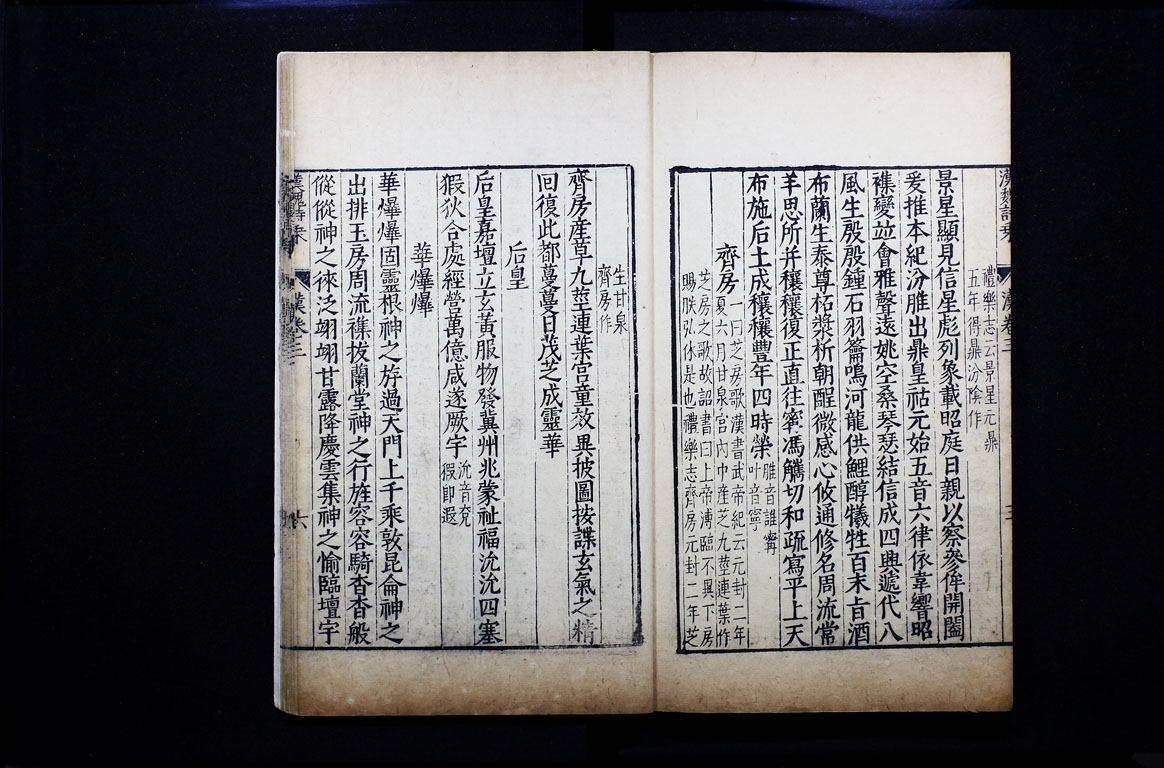 禮樂志云景星元鼎
五年得鼎汾陰作
景星顯見信星彪列象載昭庭日親以察參侔開闔
爰推本紀汾脽出鼎皇祜元始五音六律依韋響昭
襍變並會雅聲遠姚空桑琴瑟結信成四興遞代八
風生殷殷鍾石羽籥鳴河龍供鯉醇犧牲百末旨酒
布蘭生泰尊柘漿析朝酲微感心攸通修名周流常
羊思所并穰穰復正直往甯馮蠵切和疏寫平上天
布施后土成穰穰豐年四時榮
脽音誰甯
叶音寧
齊房
一曰芝房歌漢書武帝紀云元封二年
夏六月甘泉宮內中產芝九莖連葉作
芝房之歌故詔書曰上帝溥臨不異下房
賜朕弘休是也禮樂志齊房元封二年芝
生甘泉
齊房作
齊房產草九莖連葉宮童效異披圖按諜玄氣之精
回復此都蔓蔓日茂芝成靈華
后皇
后皇嘉壇立玄黃服物發冀州兆蒙祉福沇沇四塞
猳狄合處經營萬億咸遂厥宇
沇音兗
猳即遐
華爗爗
華爗爗固靈根神之斿過天門上千乘敦昆侖神之
出排玉房周流襍拔蘭堂神之行旌容容騎沓沓般
從從神之徠泛翊翊甘露降慶雲集神之愉臨壇宇
漢卷三
六